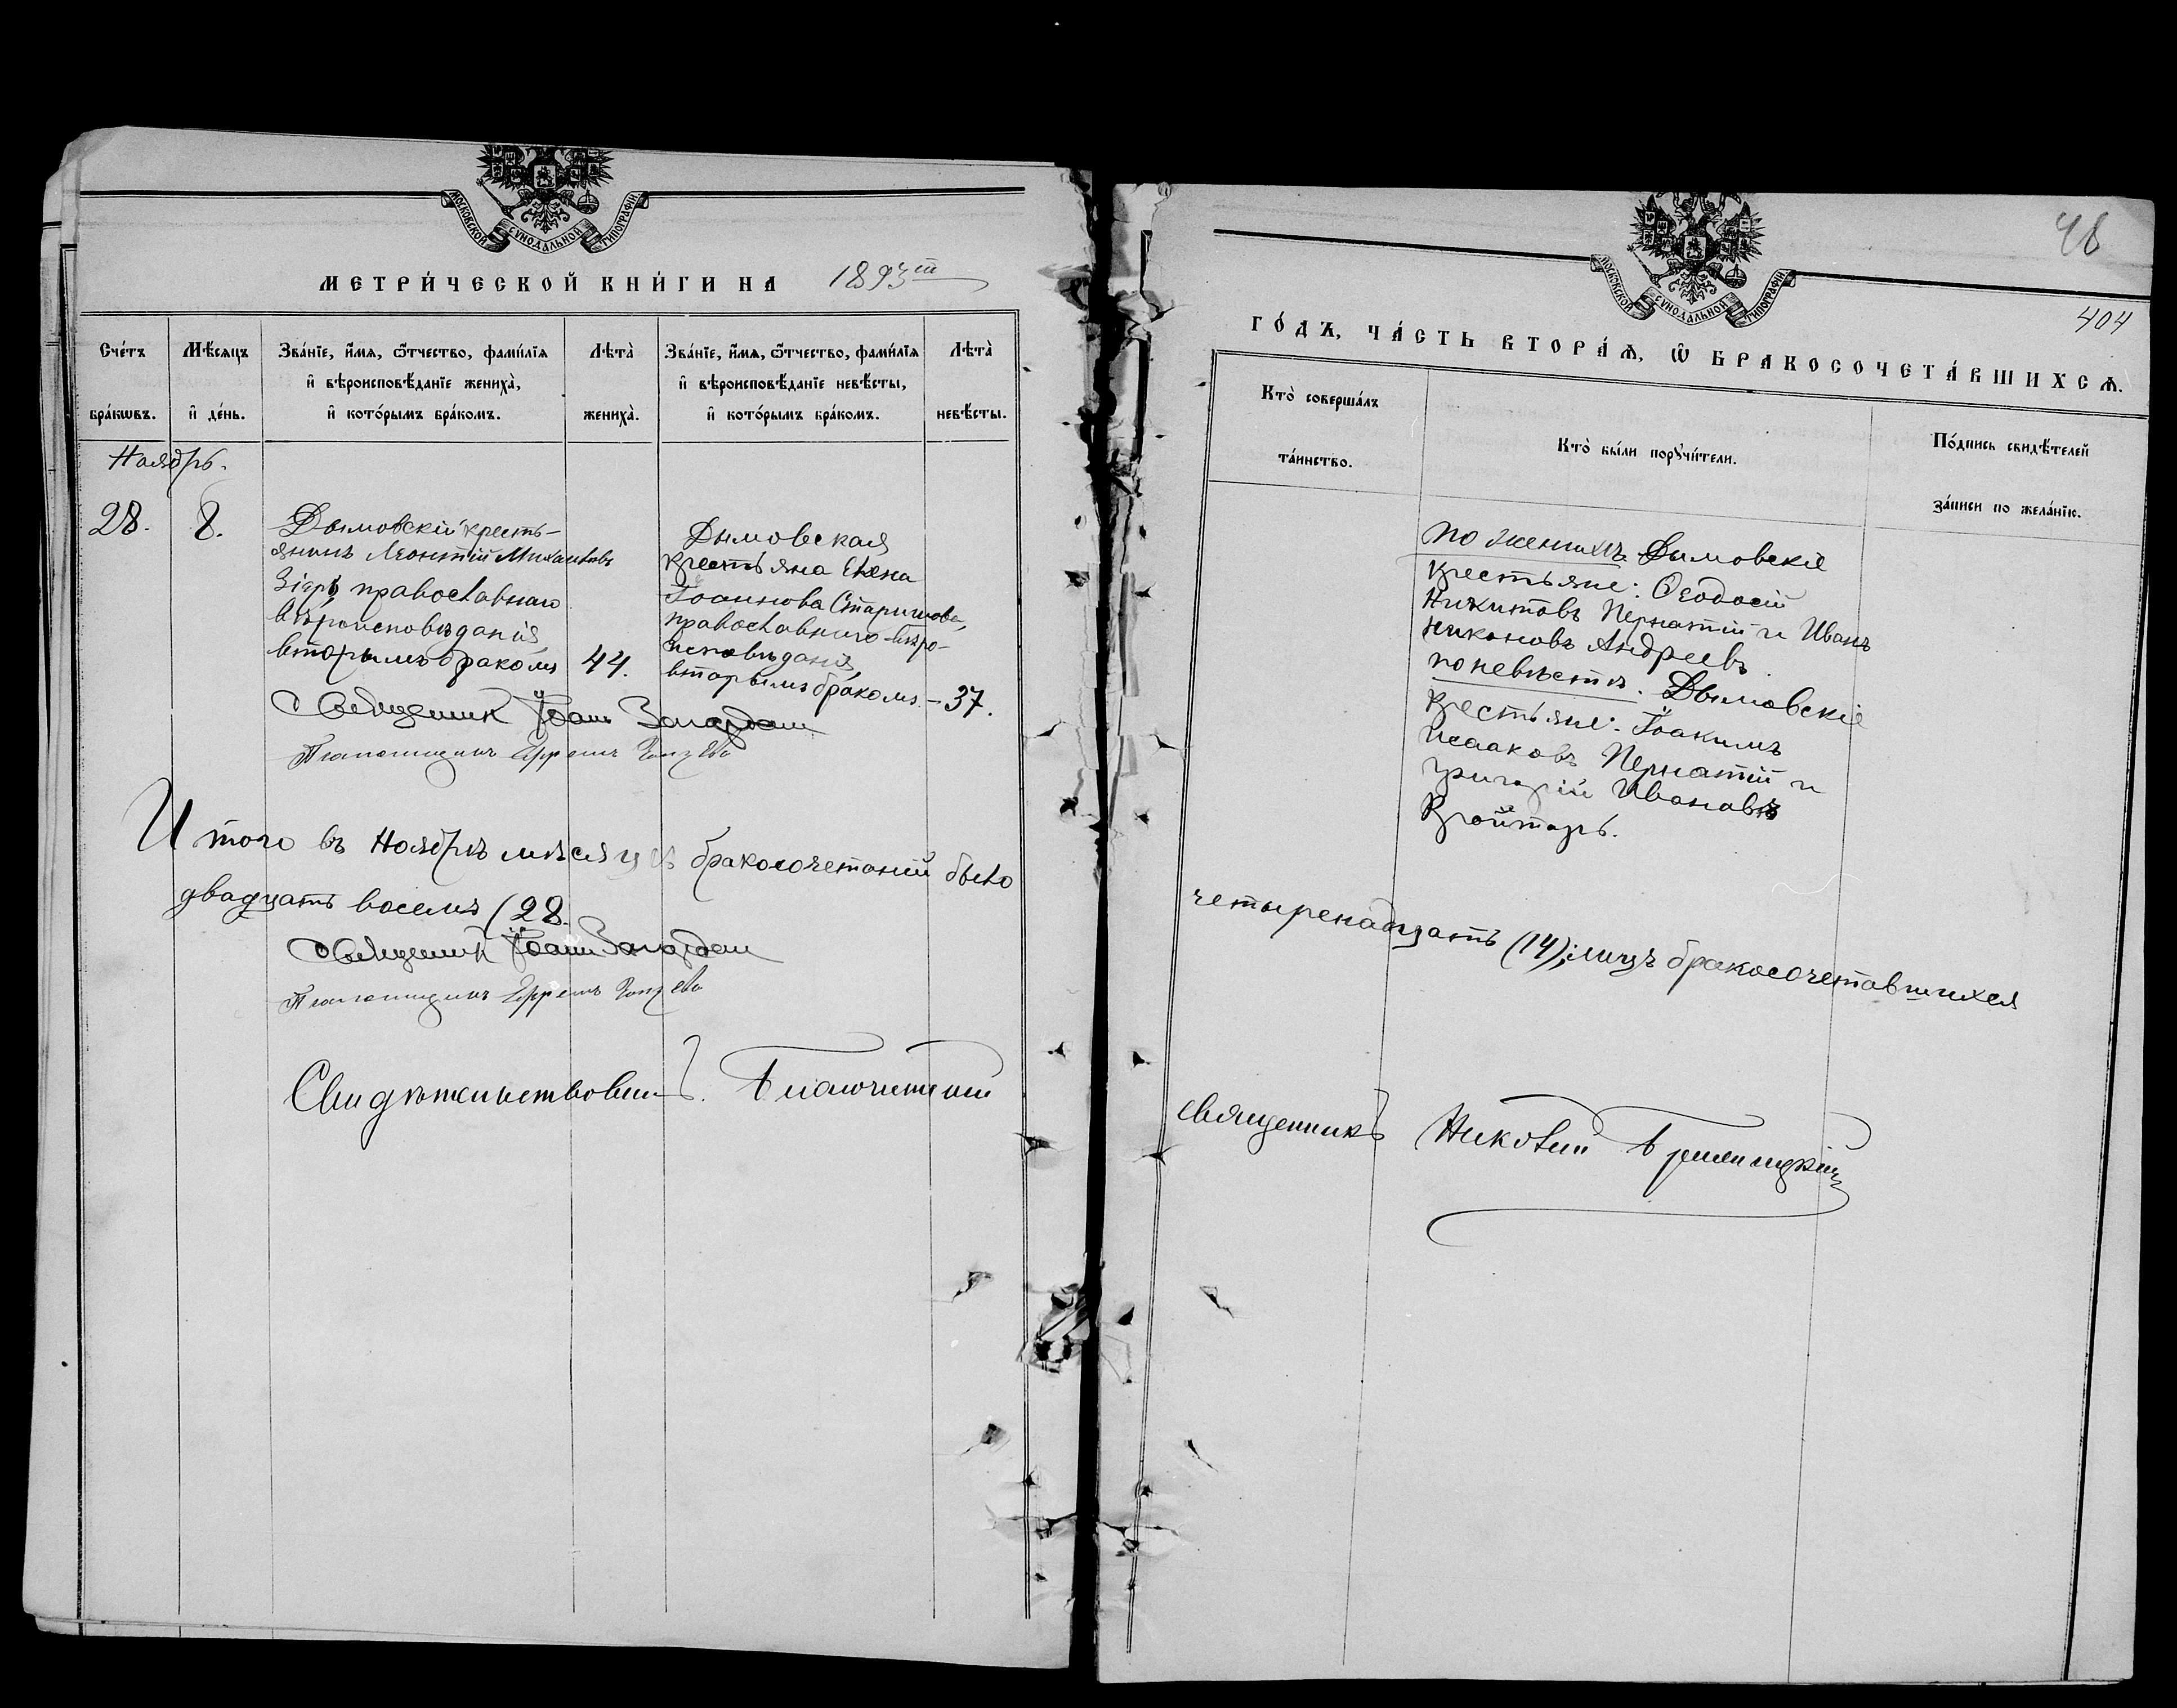 МОСКОВСКОЙ СѴНОДАЛЬНОЙ ТИПОГРАФІИ
МЕТРИ́ЧЕСКОЙ КНИ́ГИ НА 1893ій
Сче́тъ бра́кѡвъ.
Мѣ́сяцъ и҆ де́нь.
Зва́нїе, и҆́мѧ, ѻ҆́тчество, фами́лїѧ
и҆ вѣроисповѣ́данїе жениха̀,
и҆ кото́рымъ бра́комъ.
Лѣта̀ жениха̀.
Зва́нїе, и҆́мѧ, ѻ҆́тчество, фами́лїѧ
и҆ вѣроисповѣ́данїе невѣ́сты,
и҆ кото́рымъ бра́комъ.
Лѣта̀ невѣ́сты.
Ноябрь.
28.
8.
Дымовскій кресть-
янинъ Леонтій Михаиловъ
православнаго
вѣроисповѣданія,
вторымъ бракомъ
44.
Дымовская
крестьяна Елена
Іоаннова
православнаго вѣро-
исповѣданія,
вторымъ бракомъ. –
37.
Священникъ Іоаннъ
Псаломщикъ Ефремъ
Итого въ Ноябрѣ мѣсяцѣ бракосочетаній было
двадцать восемъ (28.
Священникъ Іоаннъ
Псаломщикъ Ефремъ
Свидѣтельствовалъ. Благочинный
48
404
МОСКОВСКОЙ СѴНОДАЛЬНОЙ ТИПОГРАФІИ
ГО́ДЪ, ЧА́СТЬ ВТОРА́Ѧ, Ѡ҆ БРАКОСОЧЕТА́ВШИХСѦ.
Кто̀ соверша́лъ
та́инство.
Кто̀ бы́ли порꙋчи́тели.
По́дпись свидѣ́телей
за́писи по жела́нїю.
по женихѣ. Дымовскіе
крестьяне: Ѳеодосій
Никитовъ Пернатій и Иванъ
Никоновъ Андреевъ
по невѣстѣ. Дымовскіе
крестьяне: Іоакимъ
Исааковъ Пернатій и
Григорій Ивановъ
Кройторъ.
четыренадцать (14); лицъ бракосочетавшихся
священникъ Николай